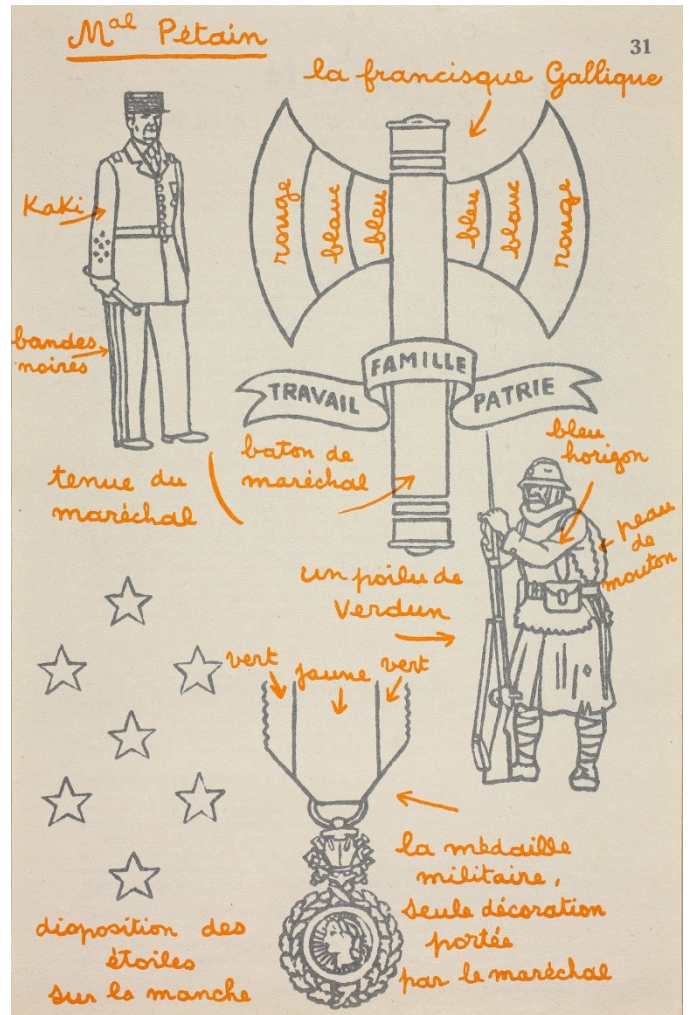 Mal Pétain
31
la francisque Gallique
Kaki
rouge
blanc
bleu
bleu
blanc
rouge
bandes
noires
TRAVAIL
FAMILLE
PATRIE
tenue du
maréchal
baton de
maréchal
bleu
horizon
peau
de
mouton
un poilu de
Verdun
vert
jaune
vert
la médaille
militaire,
seule décoration
portée
par le maréchal
disposition des
étoiles
sur la manche